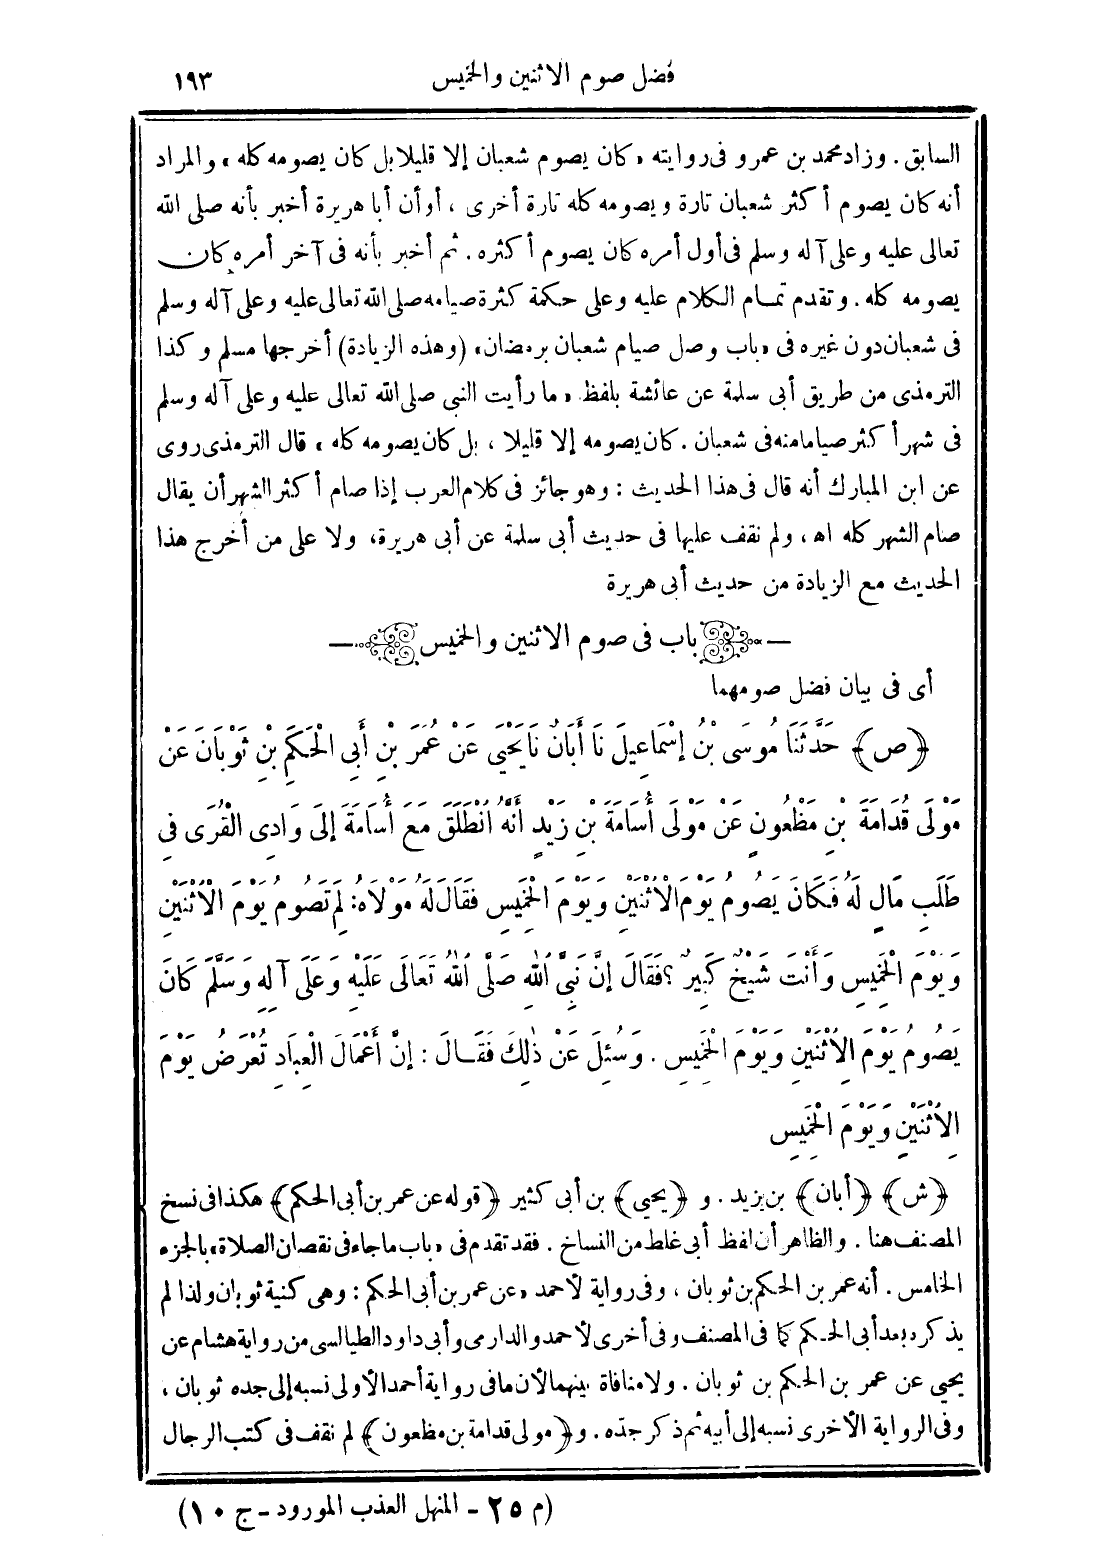 فضل صوم الاثنين والخميس ١٩٣
السابق . وزاد محمد بن عمرو فى روايته «كان يصوم شعبان إلا قليلا بل كان يصومه كله» والمراد
أنه كان يصوم أكثر شعبان تارة ويصومه كله تارة أخرى ، أو أن أبا هريرة أخبر بأنه صلى الله
تعالى عليه وعلى آله وسلم فى أول أمره كان يصوم أكثره . ثم أخبر بأنه فى آخر أمره كان
يصومه كله . وتقدم تمام الكلام عليه وعلى حكمة كثرة صيامه صلى الله تعالى عليه وعلى آله وسلم
فى شعبان دون غيره فى «باب وصل صيام شعبان برمضان» (وهذه الزيادة) أخرجها مسلم وكذا
الترمذى من طريق أبى سلمة عن عائشة بلفظ «ما رأيت النبى صلى الله تعالى عليه وعلى آله وسلم
فى شهر أكثر صياما منه فى شعبان . كان يصومه إلا قليلا ، بل كان يصومه كله» قال الترمذى روى
عن ابن المبارك أنه قال فى هذا الحديث : وهو جائز فى كلام العرب إذا صام أكثر الشهر أن يقال
صام الشهر كله اه ، ولم نقف عليها فى حديث أبى سلمة عن أبى هريرة، ولا على من أخرج هذا
الحديث مع الزيادة من حديث أبى هريرة
— باب فى صوم الاثنين والخميس —
أى فى بيان فضل صومهما
﴿ص﴾ حَدَّثَنَا مُوسَى بْنُ إِسْمَاعِيلَ نَا أَبَانُ نَا يَحْيَى عَنْ عُمَرَ بْنِ أَبِي الْحَكَمِ بْنِ ثَوْبَانَ عَنْ
مَوْلَى قُدَامَةَ بْنِ مَظْعُونٍ عَنْ مَوْلَى أُسَامَةَ بْنِ زَيْدٍ أَنَّهُ انْطَلَقَ مَعَ أُسَامَةَ إِلَى وَادِى الْقُرَى فِى
طَلَبِ مَالٍ لَهُ فَكَانَ يَصُومُ يَوْمَ الْاثْنَيْنِ وَيَوْمَ الْخَمِيسِ فَقَالَ لَهُ مَوْلَاهُ: لِمَ تَصُومُ يَوْمَ الْاثْنَيْنِ
وَيَوْمَ الْخَمِيسِ وَأَنْتَ شَيْخٌ كَبِيرٌ ؟ فَقَالَ إِنَّ نَبِىَّ اللهِ صَلَّى اللهُ تَعَالَى عَلَيْهِ وَعَلَى آلِهِ وَسَلَّمَ كَانَ
يَصُومُ يَوْمَ الِاثْنَيْنِ وَيَوْمَ الْخَمِيسِ . وَسُئِلَ عَنْ ذٰلِكَ فَقَالَ : إِنَّ أَعْمَالَ الْعِبَادِ تُعْرَضُ يَوْمَ
الِاثْنَيْنِ وَيَوْمَ الْخَمِيسِ
﴿ش﴾ ﴿أبان﴾ بن يزيد . و ﴿يحيى﴾ بن أبى كثير ﴿قوله عن عمر بن أبى الحكم﴾ هكذا فى نسخ
المصنف هنا . والظاهر أن لفظ أبى غلط من النساخ . فقد تقدم فى «باب ما جاء فى نقصان الصلاة» بالجزء
الخامس . أنه عمر بن الحكم بن ثوبان ، وفى رواية لأحمد «عن عمر بن أبى الحكم : وهى كنية ثوبان ولذا لم
يذكره بعد أبى الحكم كما فى المصنف وفى أخرى لأحمد والدارمى وأبى داود الطيالسى من رواية هشام عن
يحيى عن عمر بن الحكم بن ثوبان . ولا منافاة بينهما لأن ما فى رواية أحمد الأولى نسبه إلى جده ثوبان ،
وفى الرواية الأخرى نسبه إلى أبيه ثم ذكر جدّه . و﴿مولى قدامة بن مظعون﴾ لم نقف فى كتب الرجال
(م ٢٥ - المنهل العذب المورود - ج ١٠)